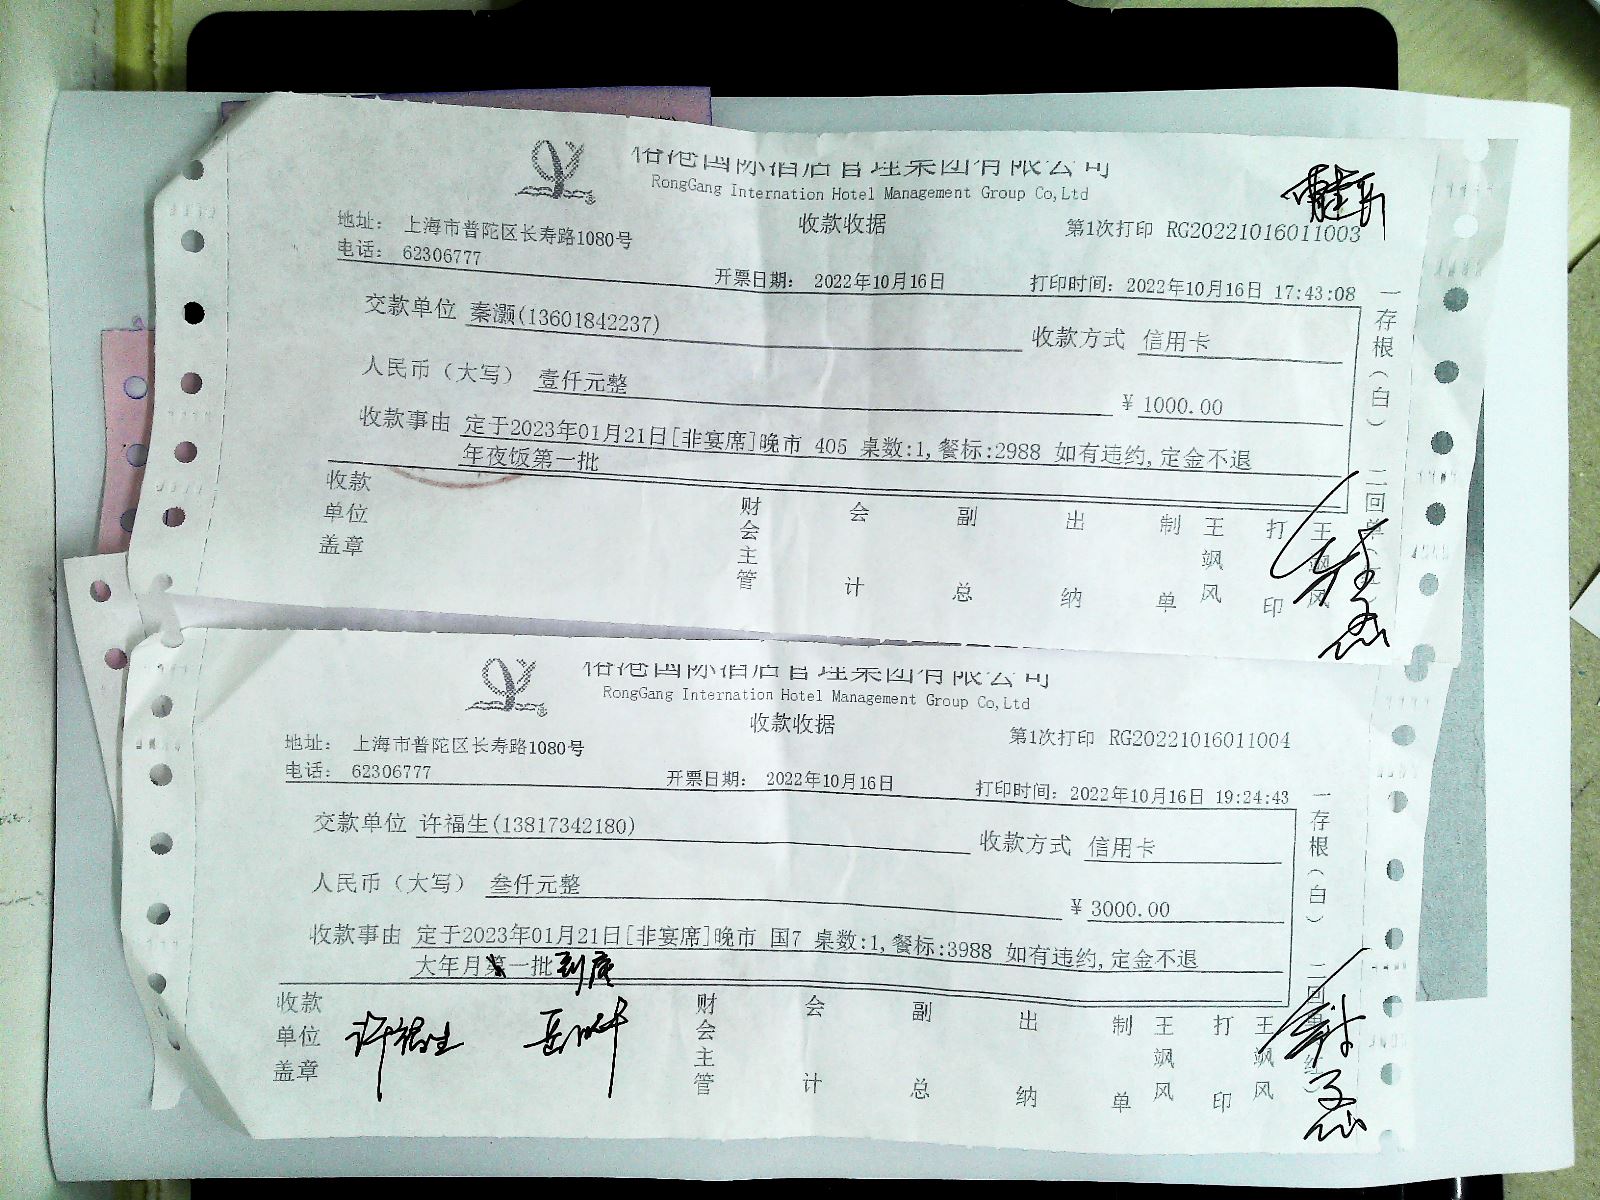 国际酒店管理集团有限公司
RongGang Internation Hotel Management Group Co,Ltd
收款收据
第1次打印 RG20221016011003
地址: 上海市普陀区长寿路1080号
电话: 62306777
开票日期: 2022年10月16日
打印时间: 2022年10月16日 17:43:08
交款单位 秦灏(13601842237)
收款方式 信用卡
人民币(大写) 壹仟元整
¥ 1000.00
收款事由 定于2023年01月21日[非宴席]晚市 405 桌数:1,餐标:2988 如有违约,定金不退
年夜饭第一批
收款单位盖章
财会主管
会计
副总
出纳
制单
王飒风
打印
王飒风
一存根(白)
二回单(红)
国际酒店管理集团有限公司
RongGang Internation Hotel Management Group Co,Ltd
收款收据
第1次打印 RG20221016011004
地址: 上海市普陀区长寿路1080号
电话: 62306777
开票日期: 2022年10月16日
打印时间: 2022年10月16日 19:24:43
交款单位 许福生(13817342180)
收款方式 信用卡
人民币(大写) 叁仟元整
¥ 3000.00
收款事由 定于2023年01月21日[非宴席]晚市 国7 桌数:1,餐标:3988 如有违约,定金不退
大年月第一批到底
收款单位盖章
许福生
财会主管
会计
副总
出纳
制单
王飒风
打印
王飒风
一存根(白)
二回单(红)